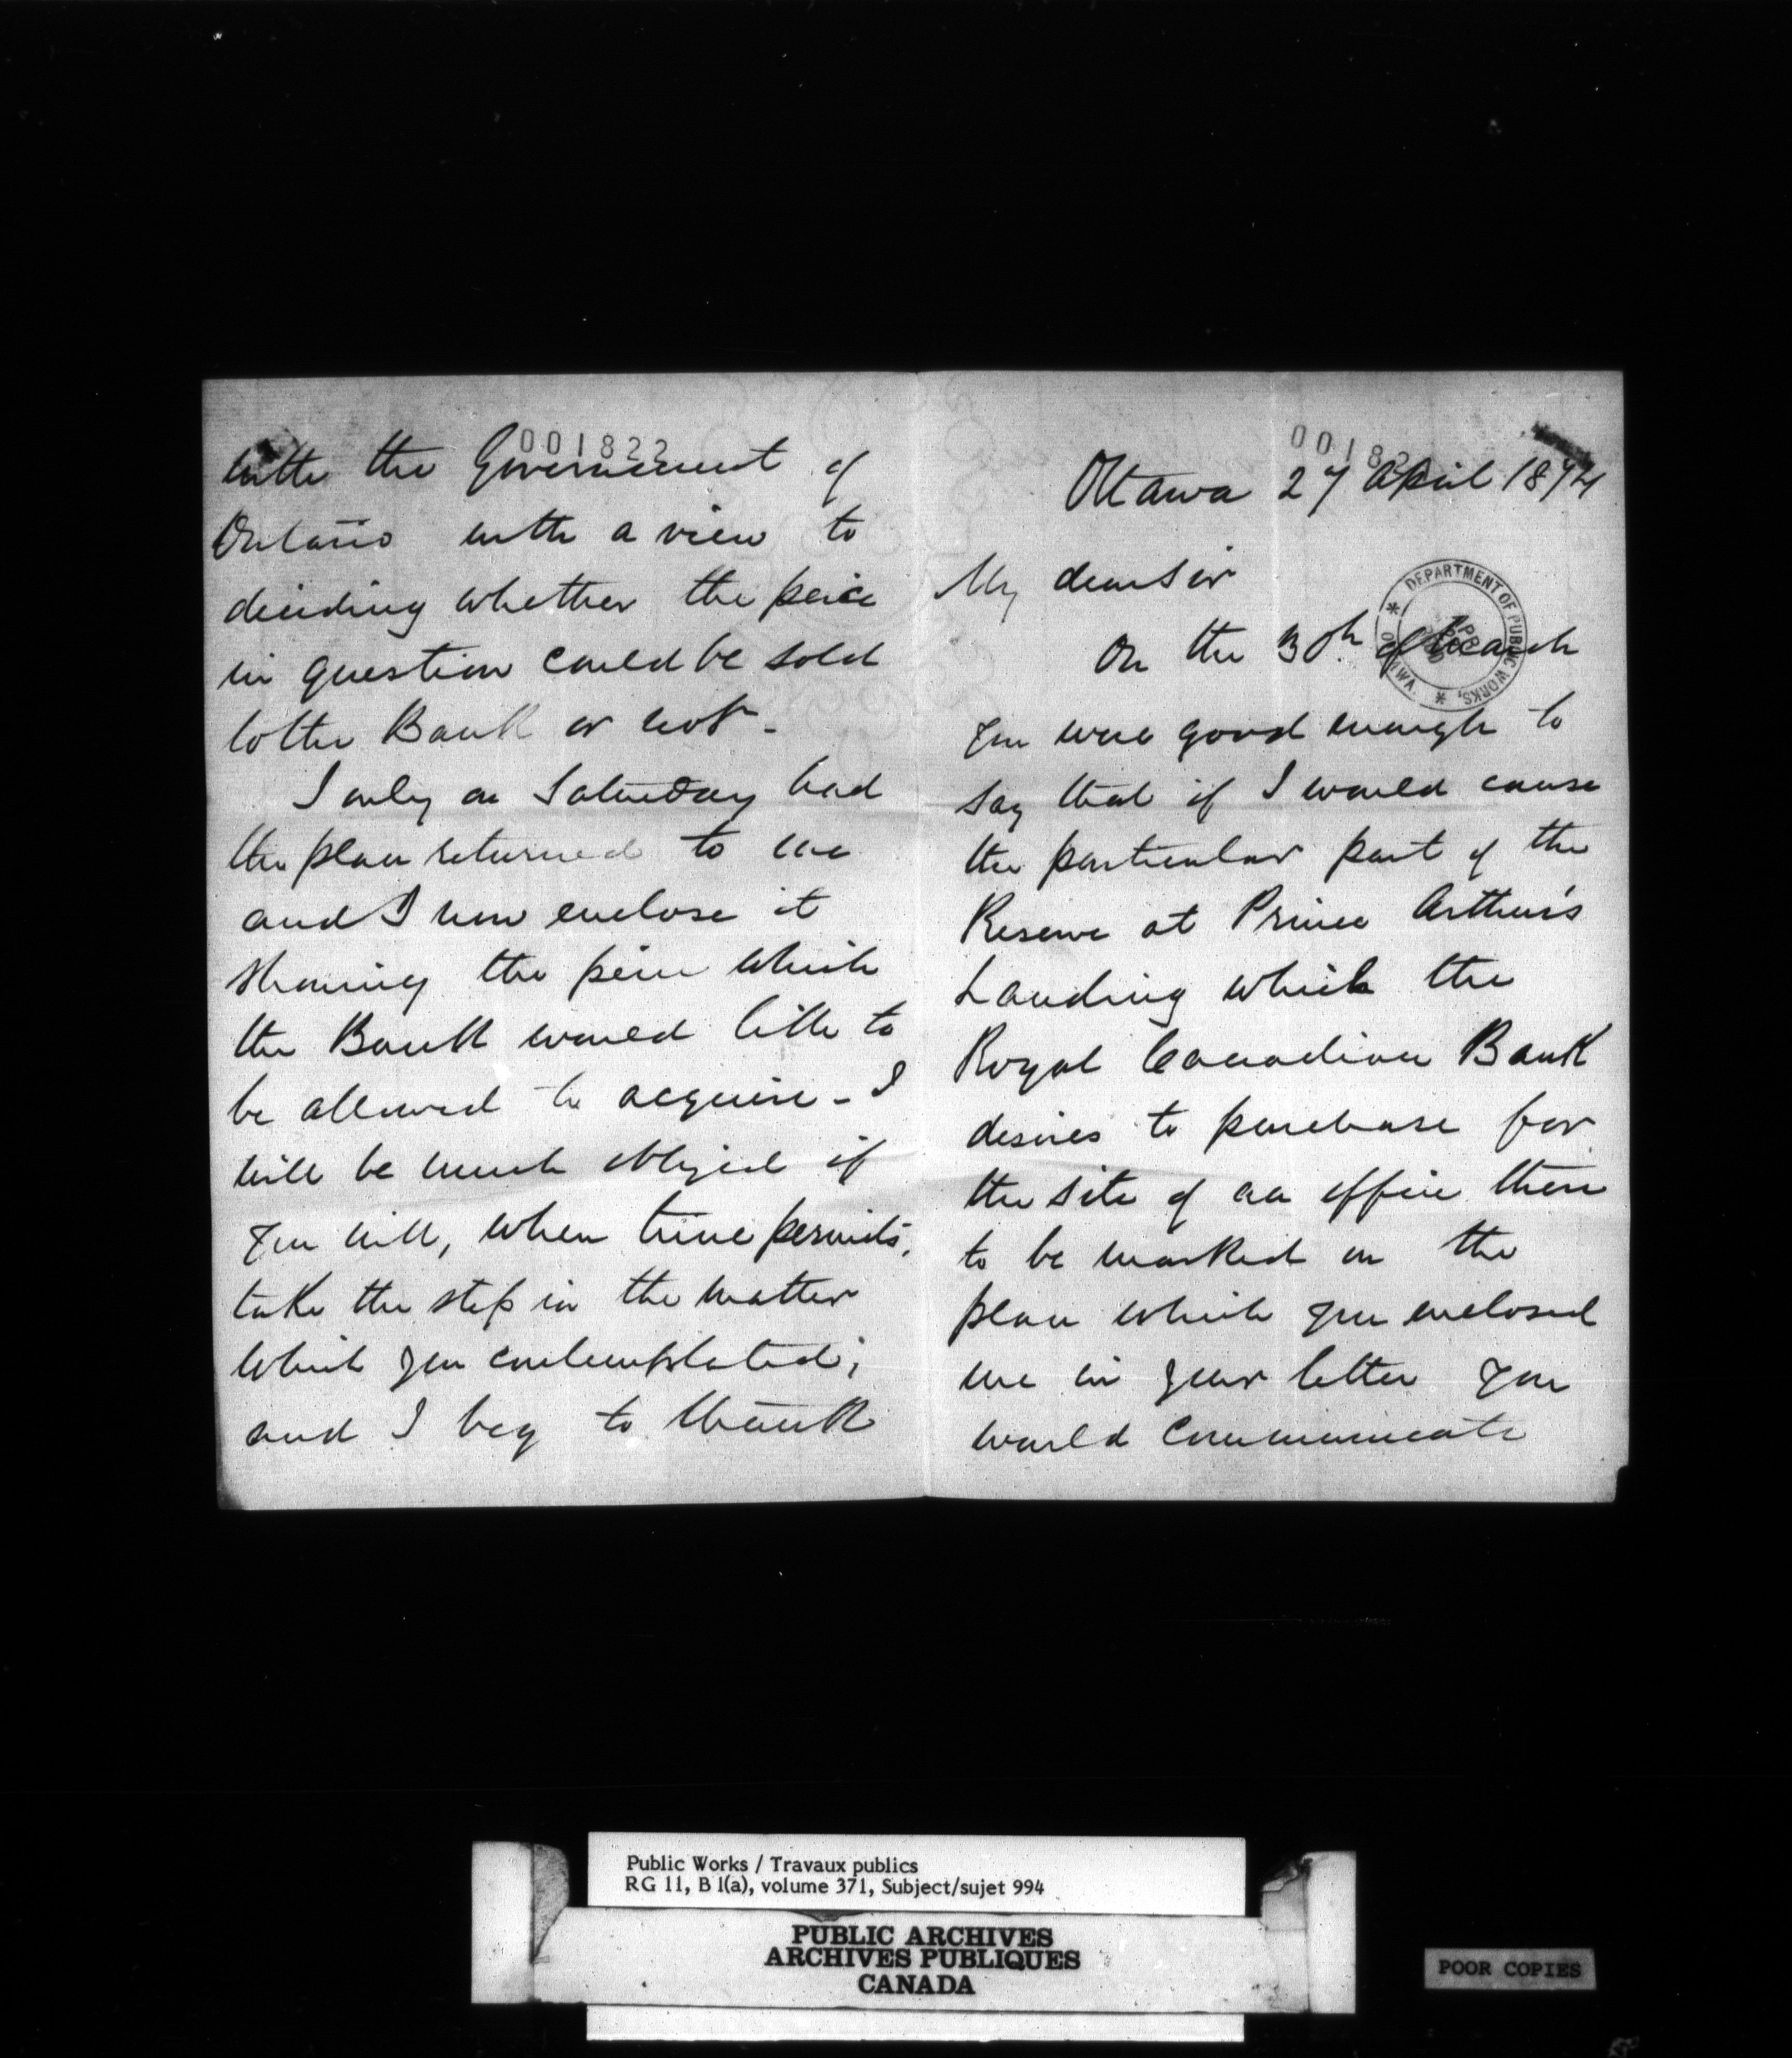 Ottawa 27 April 1874
My dear Sir
On the 30th of March
you were good enough to
say that if I would cause
the particular part of the
Reserve at Prince Arthur's
Landing which the
Royal Canadian Bank
desires to purchase for
the site of an office there
to be marked on the
plan which you enclosed
me in your letter you
would communicate
DEPARTMENT OF PUBLIC WORKS,
001822
with the Government of
Ontario with a view to
deciding whether the peice
in question could be sold
to the Bank or not -
I only on Saturday had
the plan returned to me
and I now enclose it
showing the peice which
the Bank would like to
be allowed to acquire - I
will be much obliged if
you will, when time permits,
take the step in the matter
which you contemplated;
and I beg to thank
Public Works / Travaux publics
RG 11, B 1(a), volume 371, Subject/sujet 994
PUBLIC ARCHIVES
ARCHIVES PUBLIQUES
CANADA
POOR COPIES